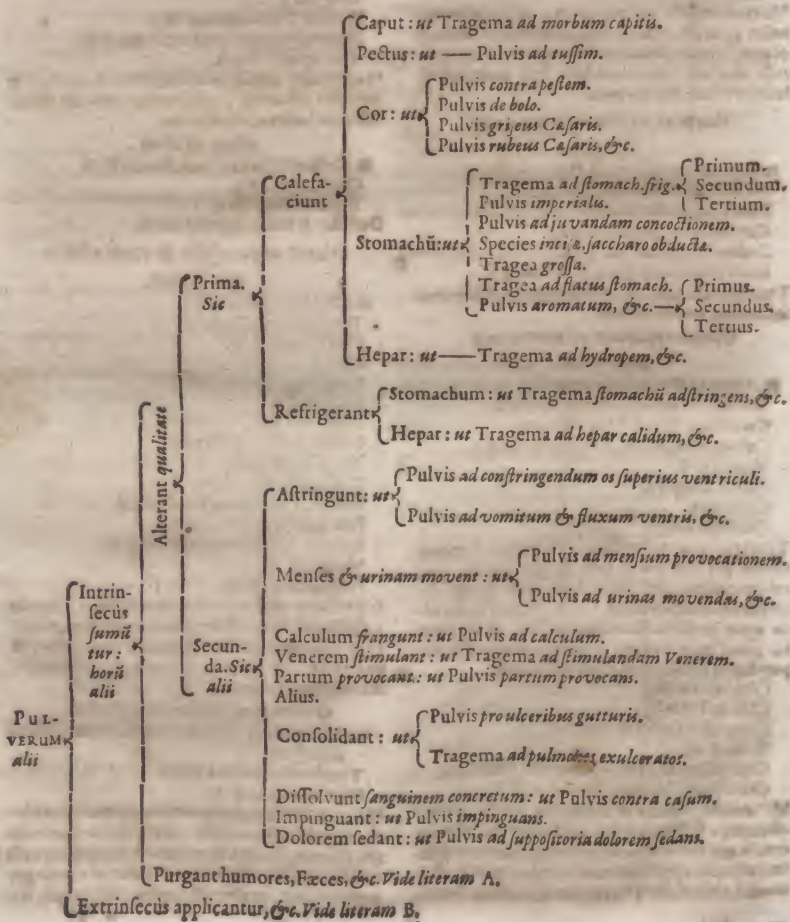 Caput: ut Tragema ad morbum capitis.
Pectus: ut — Pulvis ad tuſſim.
Cor: ut
Pulvis contra peſtem.
Pulvis de bolo.
Pulvis griſeus Cæſaris.
Pulvis rubeus Cæſaris, &c.
Calefa-
ciunt
Stomachū: ut
Tragema ad ſtomach. frig.
Primum.
Secundum.
Tertium.
Pulvis imperialis.
Pulvis ad juvandam concoctionem.
Species jaccharo obductæ.
Tragea groſſa.
Tragea ad flatus ſtomach.
Pulvis aromatum, &c.—
Primus.
Secundus.
Tertius.
Hepar: ut — Tragema ad hydropem, &c.
Prima.
Sic
Refrigerant
Stomachum: ut Tragema ſtomachū adſtringens, &c.
Hepar: ut Tragema ad hepar calidum, &c.
Alterant qualitate
Aſtringunt: ut
Pulvis ad conſtringendum os ſuperius ventriculi.
Pulvis ad vomitum & fluxum ventris, &c.
Menſes & urinam movent: ut
Pulvis ad menſium provocationem.
Pulvis ad urinas movendas, &c.
Intrin-
ſecùs
ſumū
tur:
horū
alii
Secun-
da. Sic
alii
Calculum frangunt: ut Pulvis ad calculum.
Venerem ſtimulant: ut Tragema ad ſtimulandam Venerem.
Partum provocant: ut Pulvis partum provocans.
Alius.
Conſolidant: ut
Pulvis pro ulceribus gutturis.
Tragema ad pulmones exulceratos.
PUL-
VERUM
alii
Diſſolvunt ſanguinem concretum: ut Pulvis contra caſum.
Impinguant: ut Pulvis impinguans.
Dolorem ſedant: ut Pulvis ad ſuppoſitoria dolorem ſedans.
Purgant humores, Fæces, &c. Vide literam A.
Extrinſecùs applicantur, &c. Vide literam B.